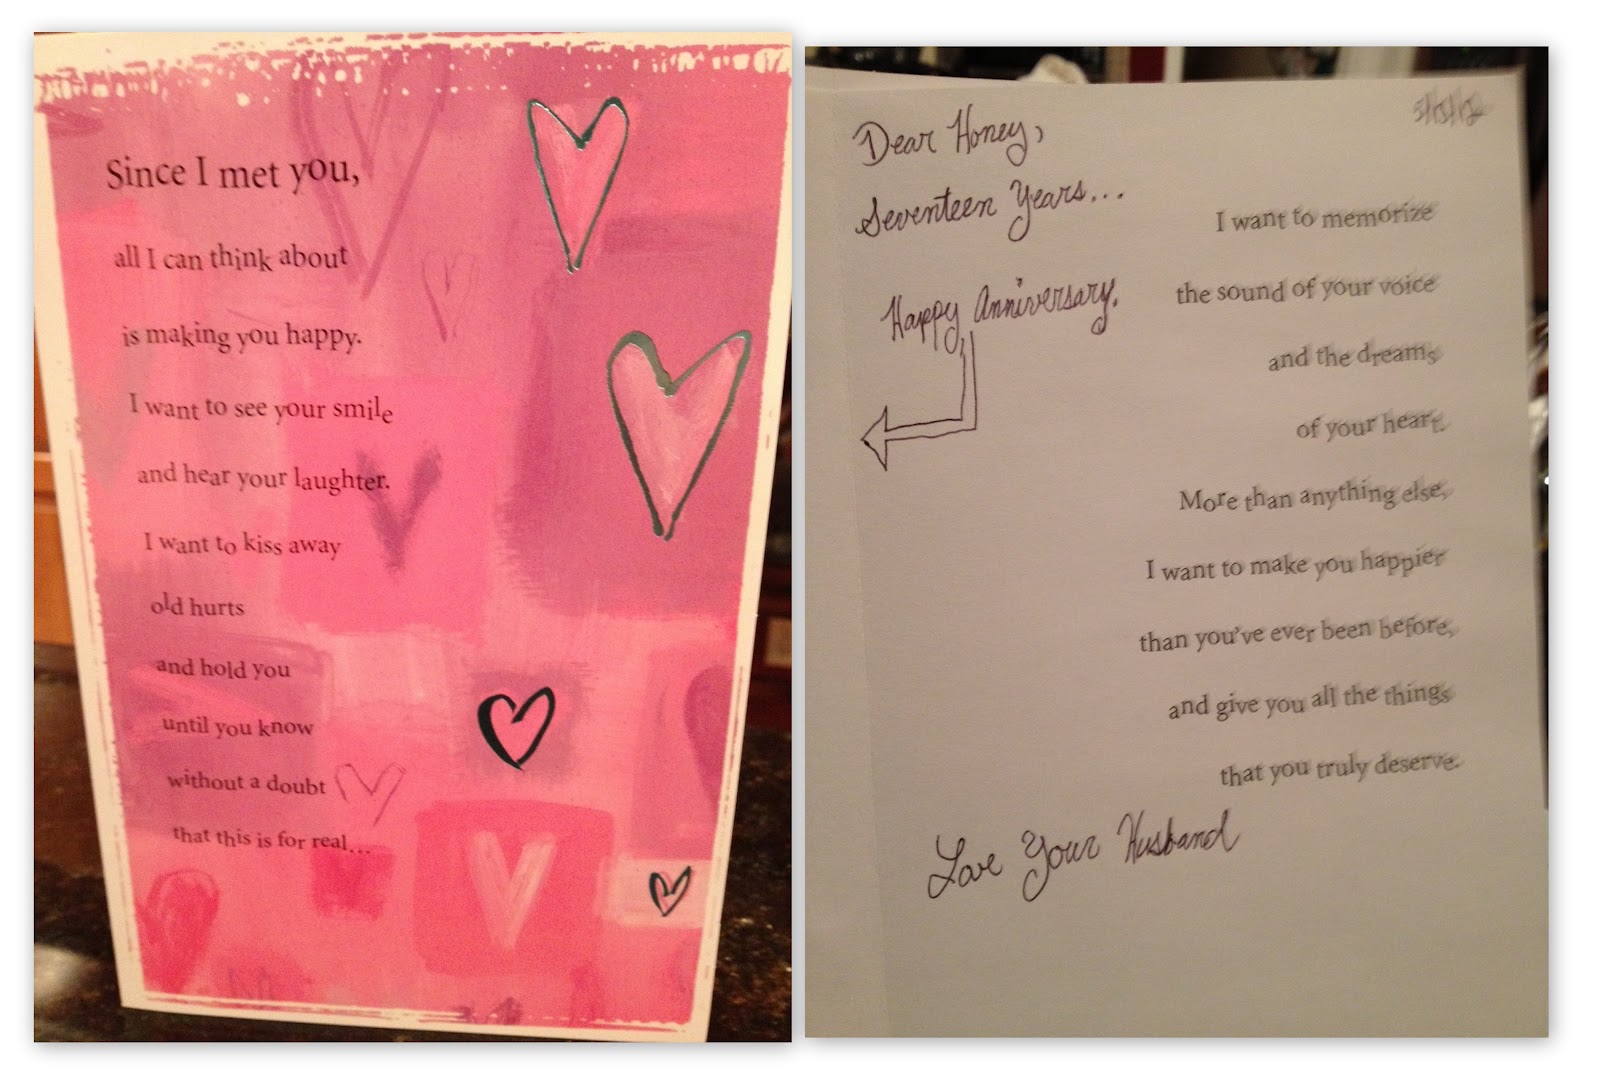 Since I met you,
all I can think about
is making you happy.
I want to see your smile
and hear your laughter.
I want to kiss away
old hurts
and hold you
until you know
without a doubt
that this is for real...
5/13/12
Dear Honey,
Seventeen Years...
Happy Anniversary.
I want to memorize
the sound of your voice
and the dreams
of your heart.
More than anything else,
I want to make you happier
than you've ever been before,
and give you all the things
that you truly deserve.
Love Your Husband